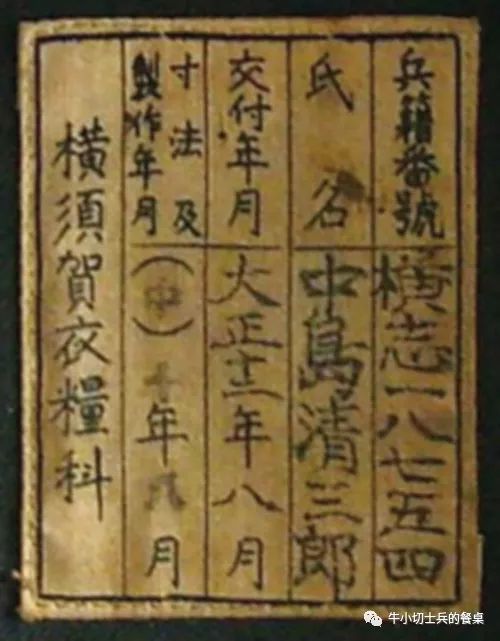 兵籍番號 横志一八七五四
氏名 中島清三郎
交付年月 大正十二年八月
寸法及
製作年月
(中)十年八月
横須賀衣糧科
牛小切士兵的餐桌